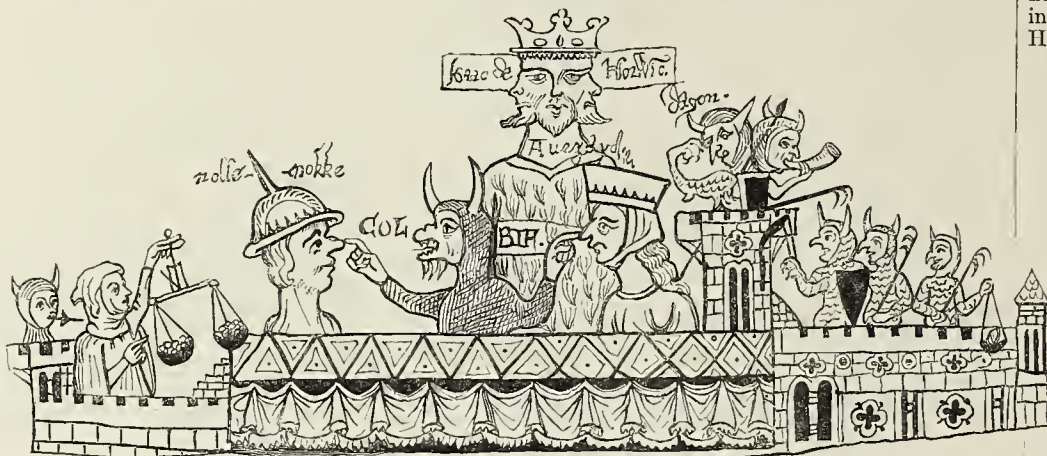 in
H
Isaac de Norwic.
Dagon.
nolle-mokke
COL BIF.